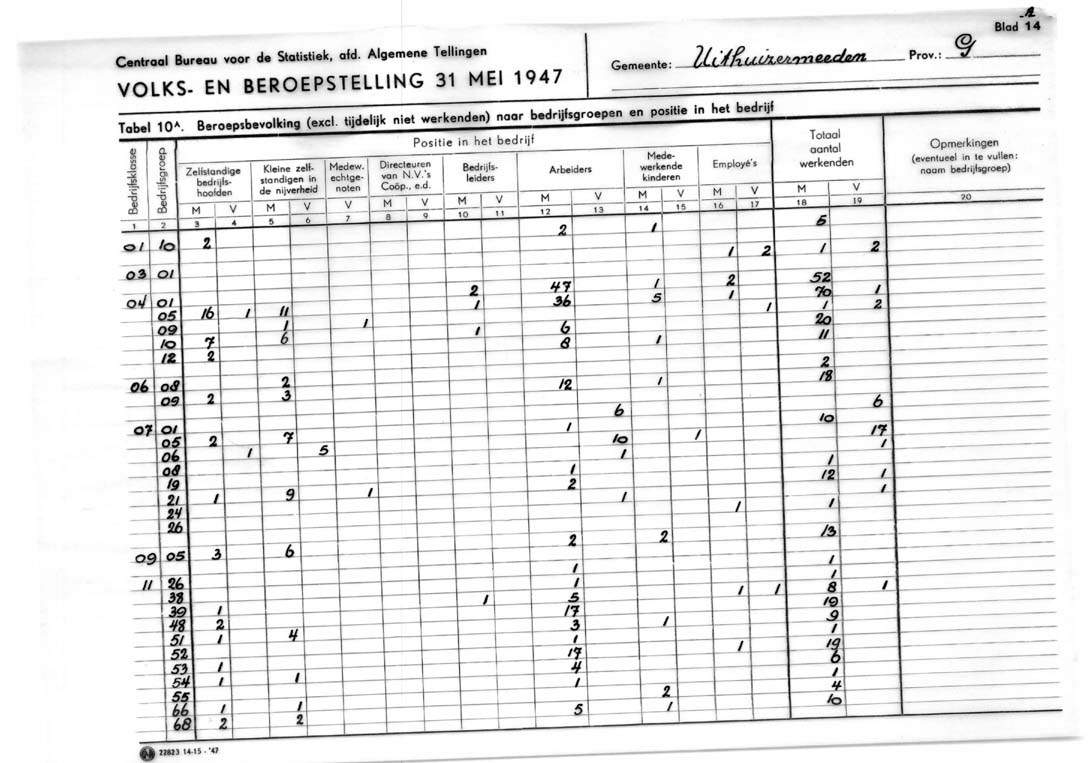 A
Blad 14
Centraal Bureau voor de Statistiek, afd. Algemene Tellingen
VOLKS- EN BEROEPSTELLING 31 MEI 1947
Gemeente: Uithuizermeeden Prov.: G
Tabel 10A. Beroepsbevolking (excl. tijdelijk niet werkenden) naar bedrijfsgroepen en positie in het bedrijf
Bedrijfsklasse
Bedrijfsgroep
Positie in het bedrijf
Zelfstandige
bedrijfs-
hoofden
Kleine zelf-
standigen in
de nijverheid
Medew.
echtge-
noten
Directeuren
van N.V.'s
Coöp., e.d.
Bedrijfs-
leiders
Arbeiders
Mede-
werkende
kinderen
Employé's
Totaal
aantal
werkenden
Opmerkingen
(eventueel in te vullen:
naam bedrijfsgroep)
M V M V V M V M V M V M V M V M V
1 2 3 4 5 6 7 8 9 10 11 12 13 14 15 16 17 18 19 20
01 10 2 2 1 5
03 01 1 2 1 2
04 01 2 47 1 2 52
05 16 1 11 1 36 5 1 70 1
09 1 1 1 1 2
10 7 6 1 6 20
12 2 8 1 11
06 08 2 2
09 2 3 12 1 18
07 01 6 6
05 2 7 1 10
06 1 5 10 1 17
08 1 1
19 1 1
21 1 9 1 2 12 1
24 1 1
26 1 1
09 05 3 6 2 2 13
11 26 1 1
38 1 1
39 1 1 5 1 1 8 1
48 2 17 19
51 1 4 3 1 9
52 1 1
53 1 17 1 19
54 1 1 4 6
55 1 1
66 1 1 2 4
68 2 2 5 1 10
22823 14-15 - '47